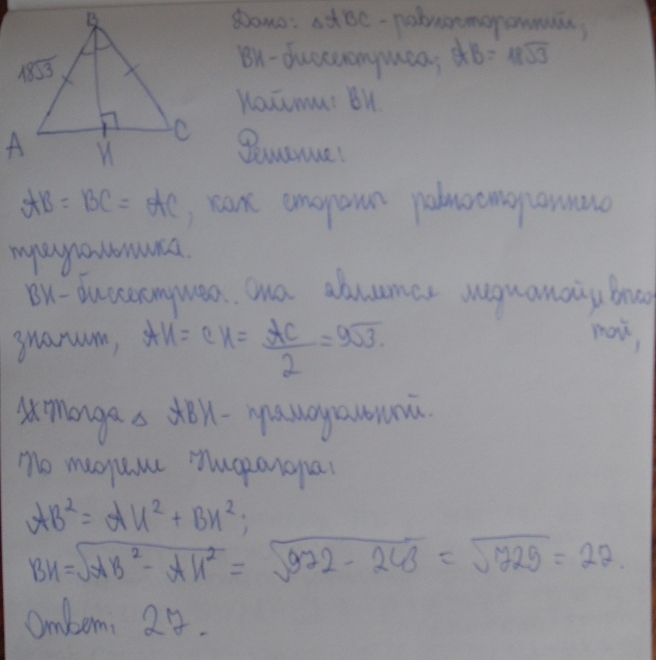 B
18√3
A
H
C
Дано: △ABC - равносторонний,
BH - биссектриса; AB = 18√3
Найти: BH
Решение:
AB = BC = AC, как стороны равностороннего
треугольника.
BH - биссектриса. Она является медианой и высо-
той,
значит, AH = CH = AC/2 = 9√3.
Тогда △ ABH - прямоугольный.
По теореме Пифагора:
AB² = AH² + BH²;
BH = √AB² - AH² = √972 - 243 = √729 = 27.
Ответ: 27.